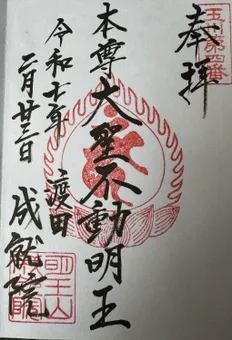 奉拝
本尊大聖不動明王
渡田
成就院
令和七年
二月廿三日
明王山